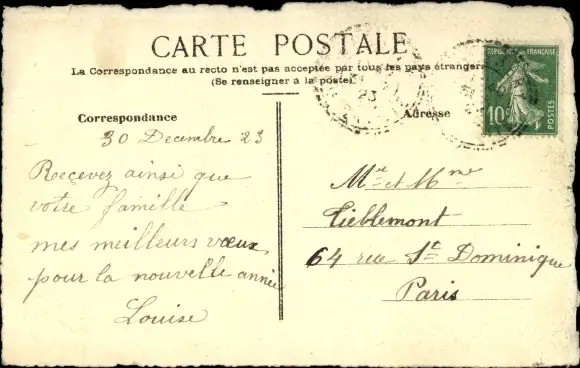 CARTE POSTALE
La Correspondance au recto n'est pas acceptée par tous les pays étrangers
(Se renseigner à la poste)
Correspondance
30 Decembre 23
Recevez ainsi que
votre famille
mes meilleurs vœux
pour la nouvelle année
Louise
Adresse
Mr et Mme
Lieblemont
64 rue St Dominique
Paris
REPUBLIQUE FRANÇAISE
10c
POSTES
23